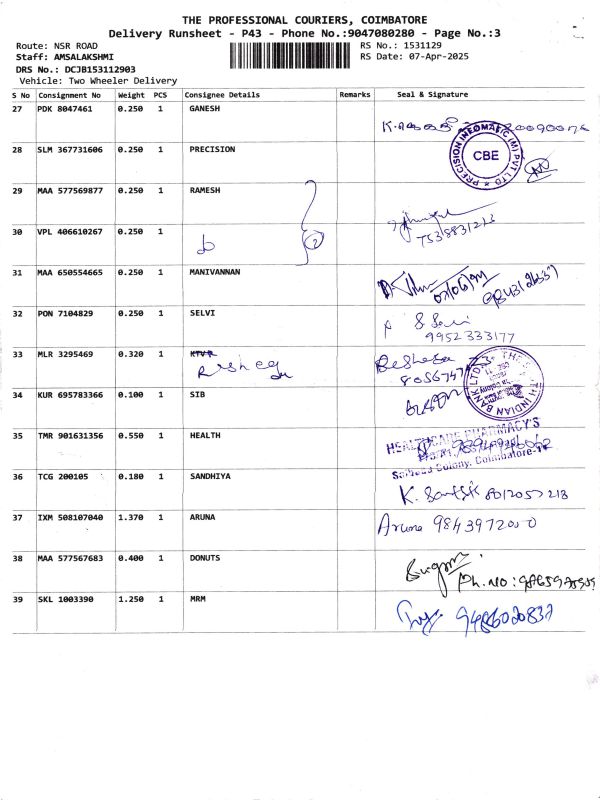 THE PROFESSIONAL COURIERS, COIMBATORE
Delivery Runsheet - P43 - Phone No.:9047080280 - Page No.:3
Route: NSR ROAD RS No.: 1531129
Staff: AMSALAKSHMI RS Date: 07-Apr-2025
DRS No.: DCJB153112903
Vehicle: Two Wheeler Delivery
S No Consignment No Weight PCS Consignee Details Remarks Seal & Signature
27 PDK 8047461 0.250 1 GANESH
28 SLM 367731606 0.250 1 PRECISION
PRECISION INFOMATIC (M) PVT LTD
CBE
29 MAA 577569877 0.250 1 RAMESH
7538831213
30 VPL 406610267 0.250 1
2
31 MAA 650554665 0.250 1 MANIVANNAN
32 PON 7104829 0.250 1 SELVI
9952333177
33 MLR 3295469 0.320 1 KTVR
34 KUR 695783366 0.100 1 SIB
INDIAN BANK LTD.
35 TMR 901631356 0.550 1 HEALTH
HEALTHCARE PHARMACY'S
Colony, Coimbatore
36 TCG 200105 0.180 1 SANDHIYA
8012057218
37 IXM 508107040 1.370 1 ARUNA
Aruna 9843972000
38 MAA 577567683 0.400 1 DONUTS
Ph.no:
39 SKL 1003390 1.250 1 MRM
9486020837